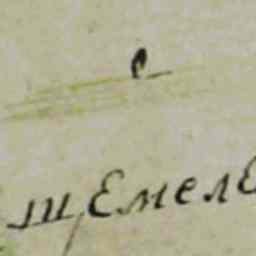 е
щемеле